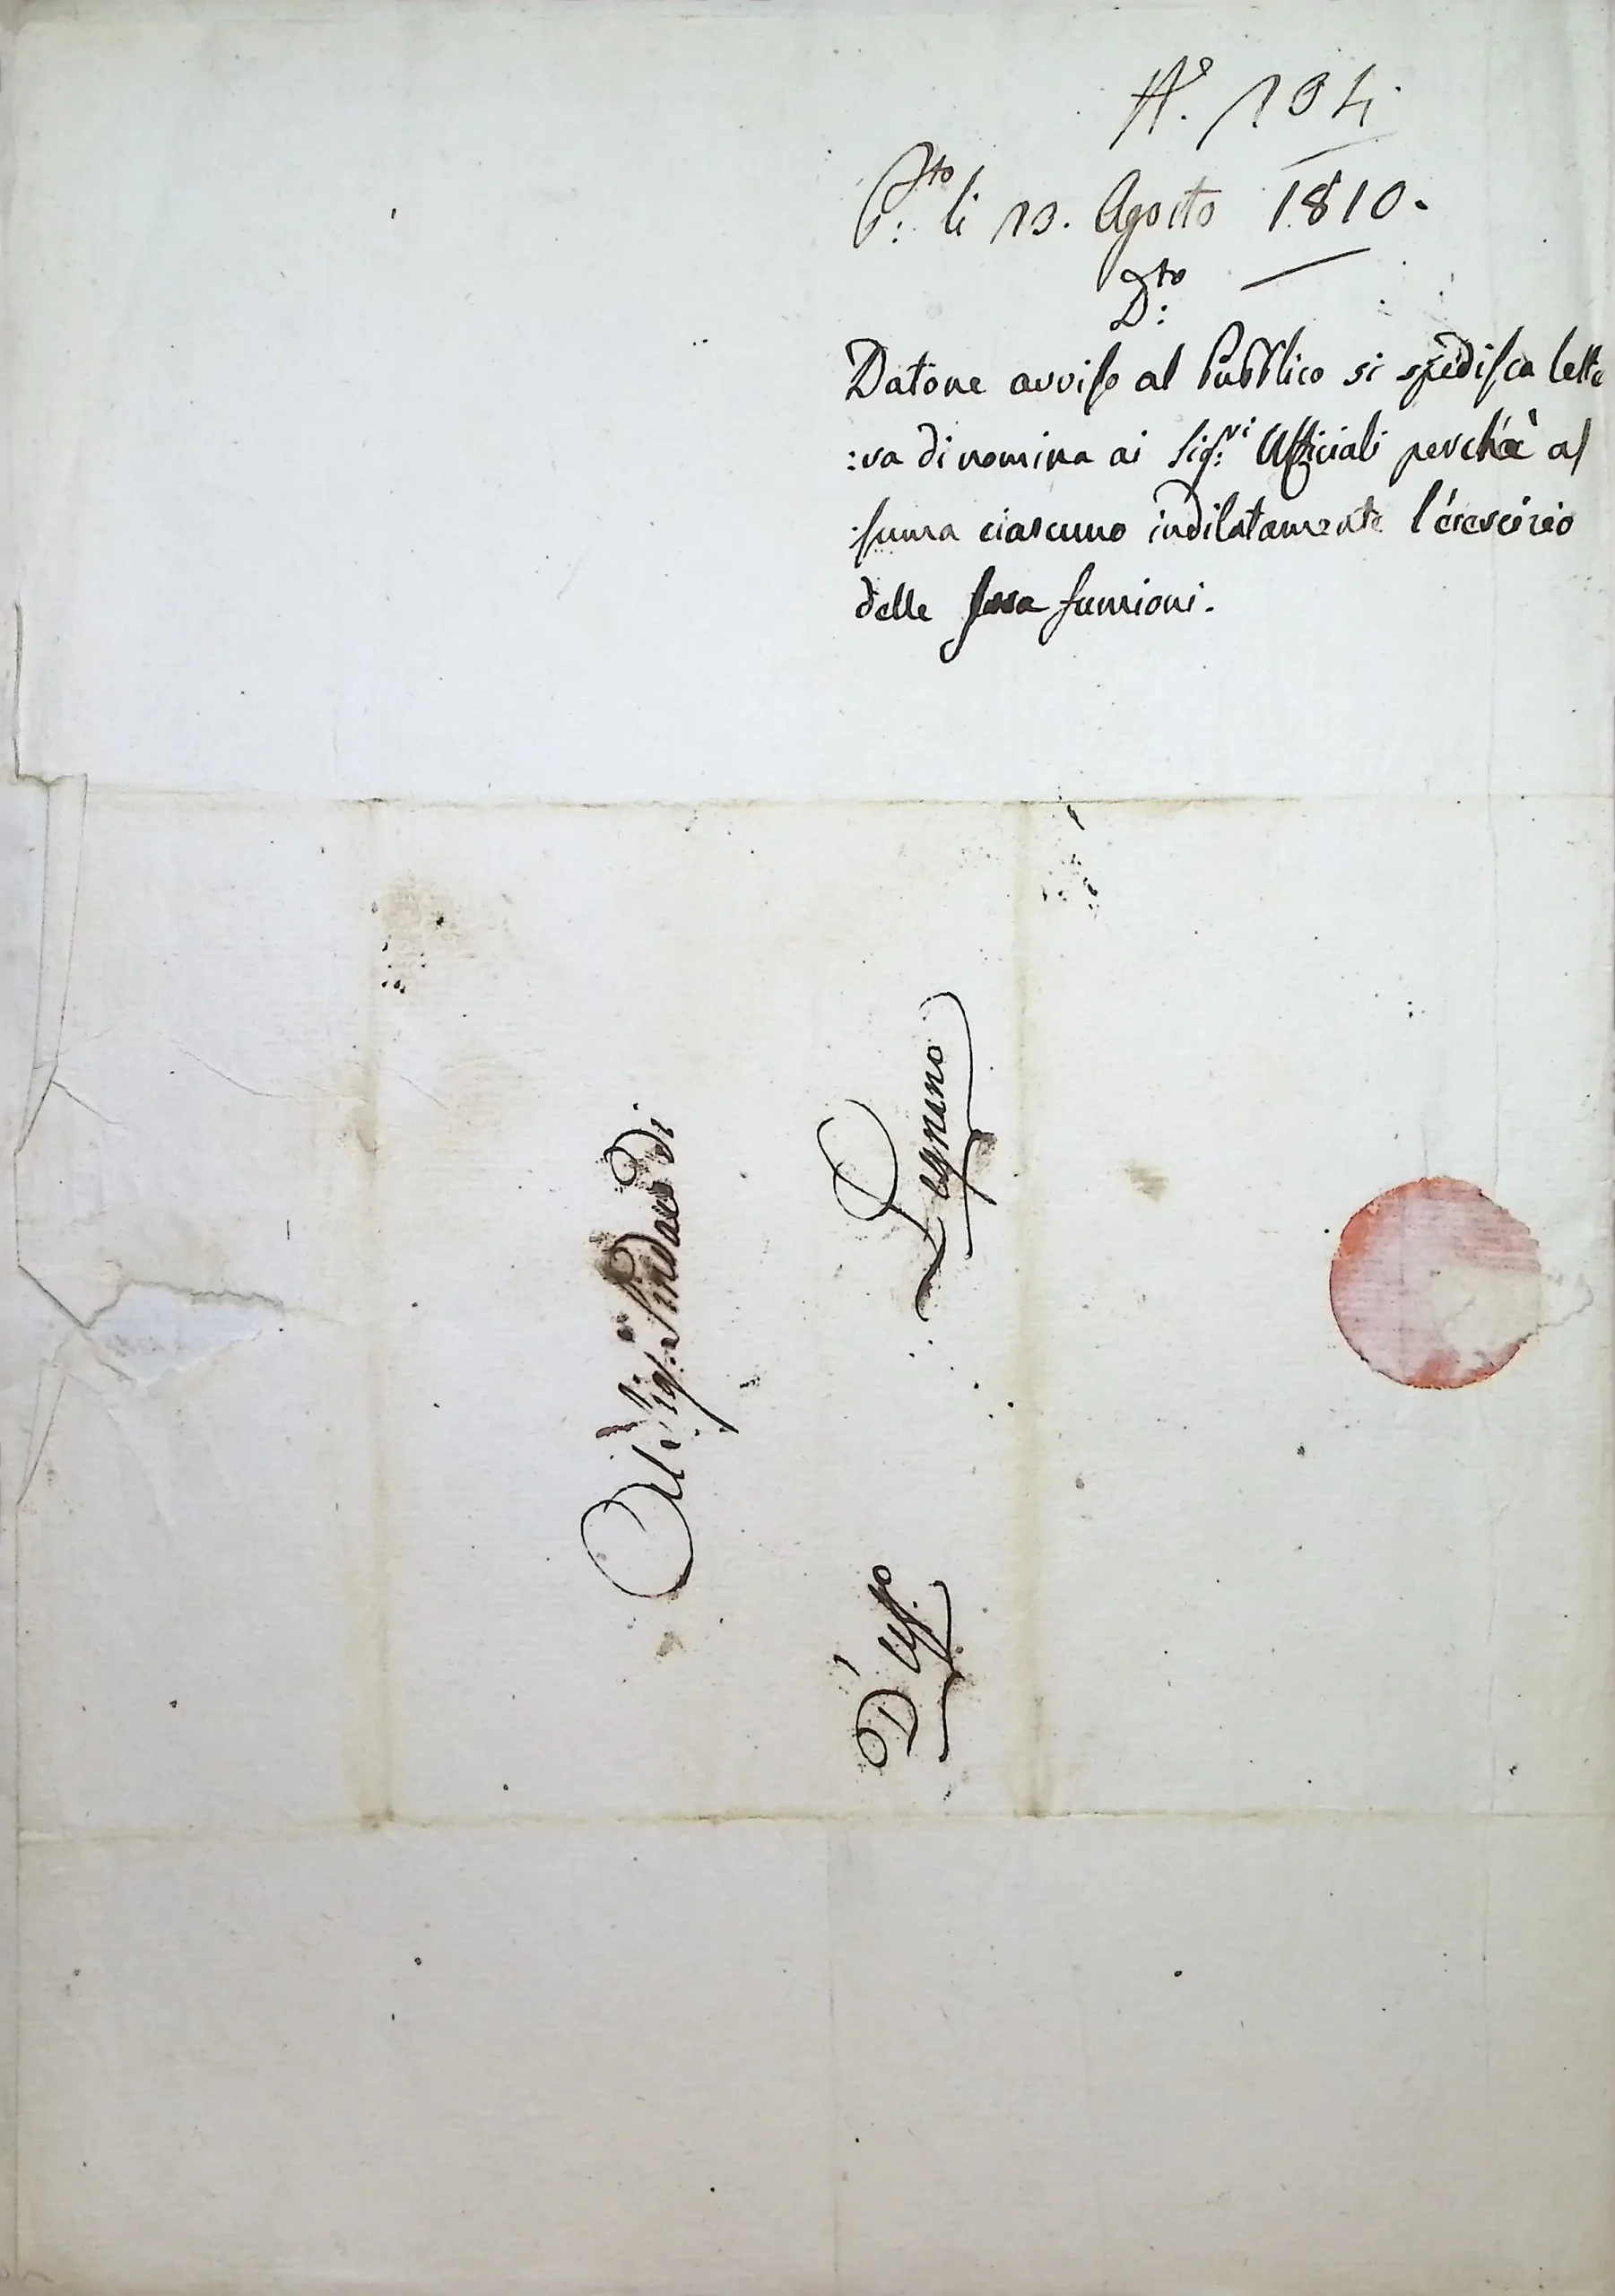 N.° 194.
P.to li 13. Agosto 1810.
D.to:
Datone avviso al Pubblico si spedisca lette
:ra di nomina ai Sig.ri Uffiziali perchè as
:suma ciascuno indilatamente l'esercizio
delle funzioni.
Al Sig. Sindaco di
Legnano
D'Uff.o